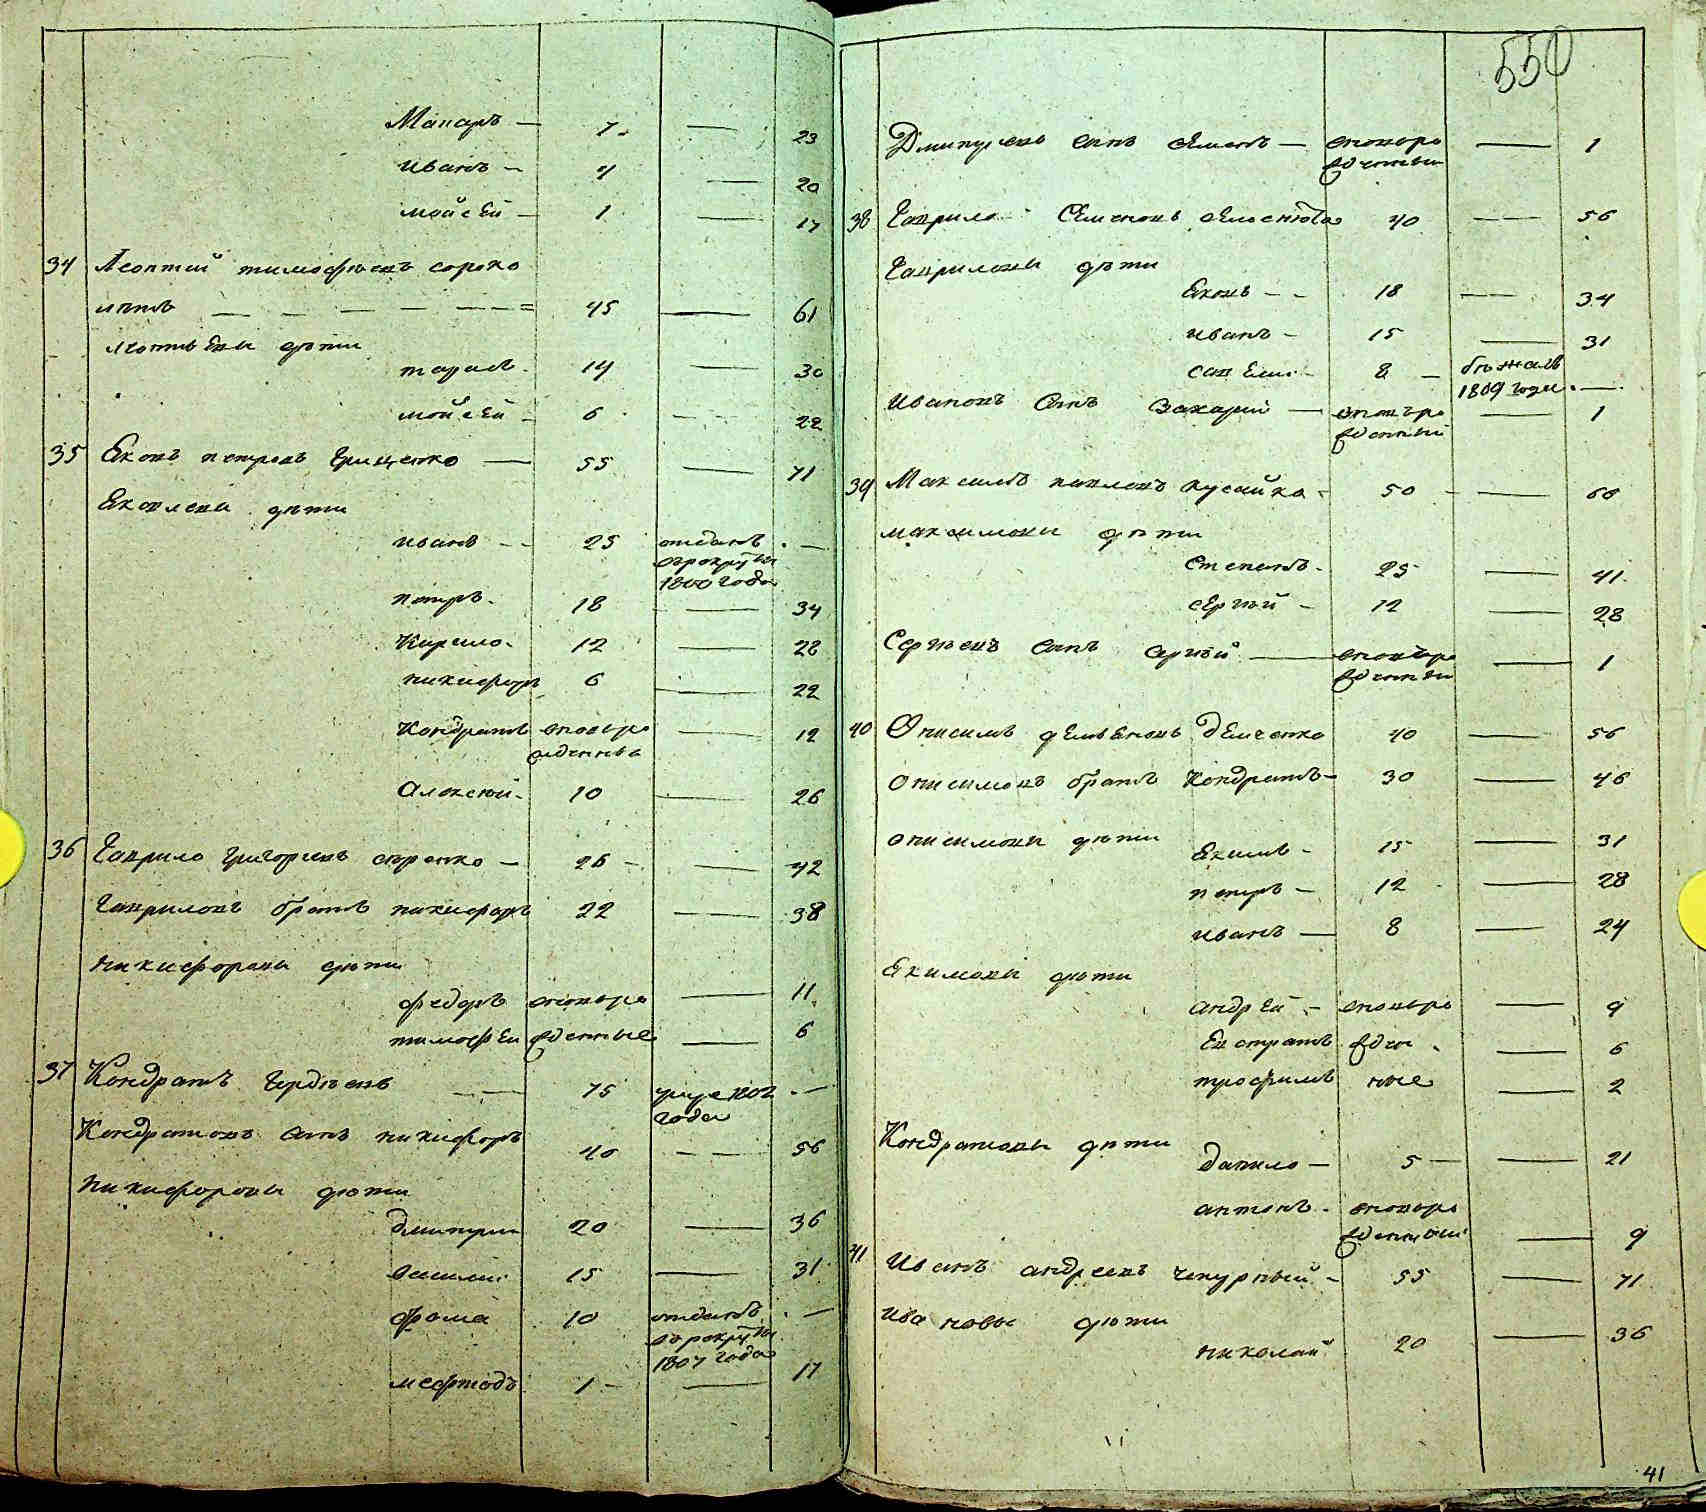 Макаръ — 7 — 23
иванъ — 4 — 20
мойсей — 1 — 17
34 Леонтий тимофѣевъ сороко
лѣтъ — 45 — 61
леонтьевы дѣти
тарасъ 14 — 30
мойсей 6 — 22
35 Яковъ петровъ Грищенко — 55 — 71
Яковлевы дѣти
иванъ — 25 отданъ —
в рекруты
1806 года
петръ 18 — 34
Кирило 12 — 28
никифоръ 6 — 22
Кондратъ новоро — 12
жденны
Алексей 10 — 26
36 Гаврило Григорьевъ — 26 — 42
Гавриловъ братъ никифоръ 22 — 38
никифоровы дѣти
федоръ новоро — 11
тимофей жденные — 6
37 Кондратъ Гордѣевъ — 75 умре 1802 —
года
Кондратовъ сынъ никифоръ
40 — 56
никифоровы дѣти
дмитрии 20 — 36
василии 15 — 31
фома 10 отданъ —
в рекруты
1807 года
мефтодъ 1 — 17
550
Дмитриевъ сынъ семенъ — новоро — 1
жденный
38 Гаврило Семеновъ 40 — 56
Гавриловы дѣти
Яковъ — 18 — 34
иванъ — 15 — 31
савели — 8 — бѣжалъ
1809 года —
ивановъ сынъ захарий — новоро — 1
жденный
39 Максимъ павловъ кусайко — 50 — 66
максимовы дѣти
Степанъ 25 — 41
сергѣй 12 — 28
Сергѣевъ сынъ сергѣй — новоро — 1
жденны
40 Онисимъ демьяновъ Демченко 40 — 56
онисимовъ братъ Кондратъ — 30 — 46
онисимовы дѣти
Якимъ — 15 — 31
петръ — 12 — 28
иванъ — 8 — 24
Якимовы дѣти
андрей — новоро — 9
Евстратъ жден — 6
трофимъ ные — 2
Кондратовы дѣти
данило — 5 — 21
антонъ новоро
жденный — 9
41 иванъ андреевъ чепурный — 55 — 71
ивановы дѣти
николай 20 — 36
41